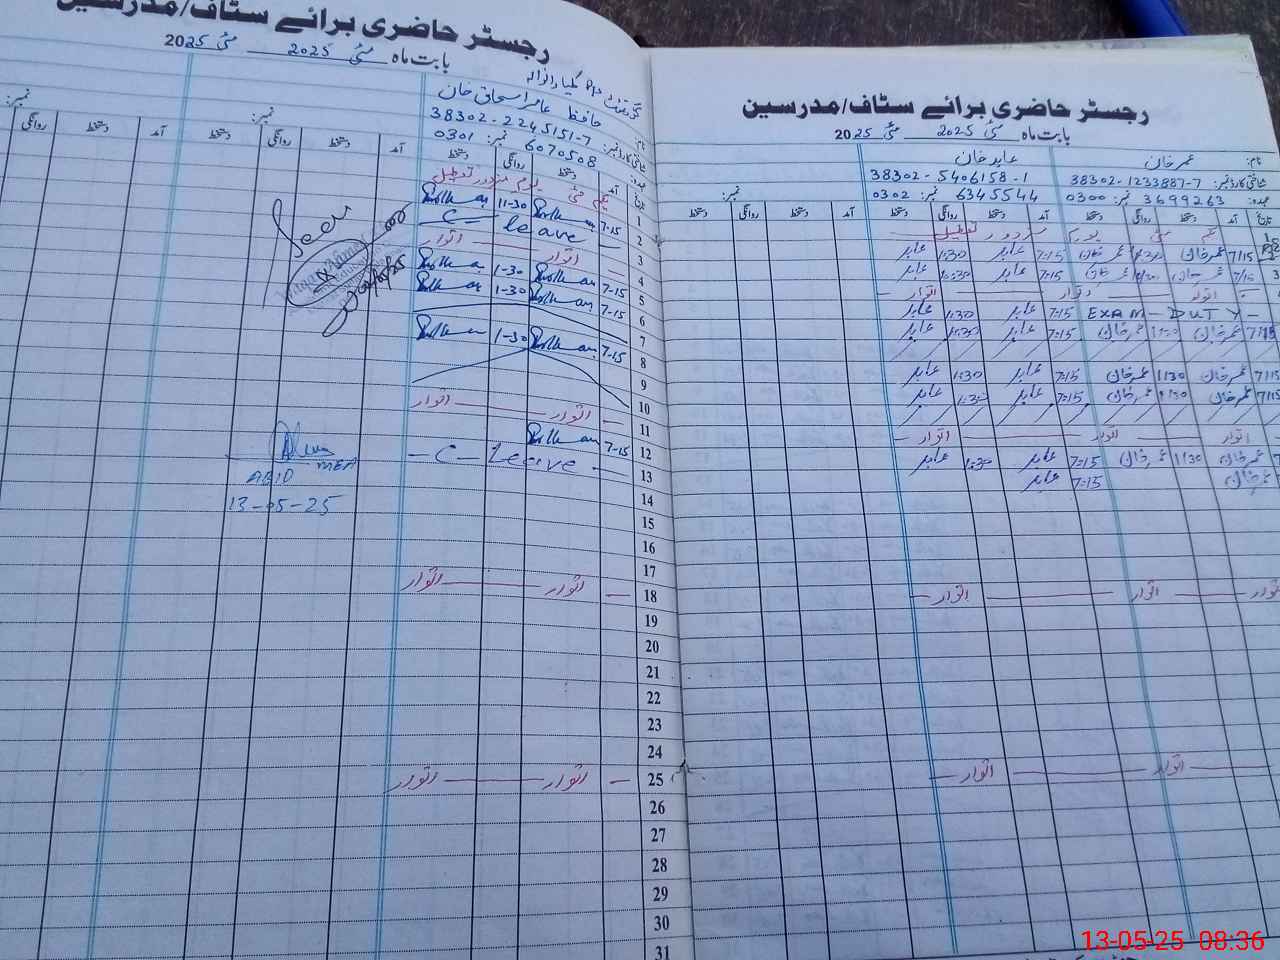 رجسٹر حاضری برائے سٹاف/مدرسین
بابت ماہ مئی 2025 مئی 2025
گورنمنٹ
نام: حافظ عامر اسحاق خان
شناختی کارڈ نمبر: 38302-2245151-7
عہدہ: نمبر: 0301 6070508
نمبر: نمبر:
تاریخ آمد دستخط روانگی دستخط آمد دستخط روانگی دستخط آمد دستخط روانگی
1 یکم مئی یوم مزدور تعطیل
2 7-15 11-30
3 C - leave
4 اتوار اتوار
5 7-15 1-30
6 7-15 1-30
7
8 7-15 1-30
9
10
11 اتوار اتوار
12 7-15
13 - C - Leave -
14
15
16
17
18 اتوار اتوار
19
20
21
22
23
24
25 اتوار اتوار
26
27
28
29
30
31
MEA
ABID
13-05-25
رجسٹر حاضری برائے سٹاف/مدرسین
بابت ماہ مئی 2025 مئی 2025
نام: عمر خان عابد خان
شناختی کارڈ نمبر: 38302-1233887-7 38302-5406158-1
عہدہ: نمبر: 0300 3699263 نمبر: 0302 6345544 نمبر:
تاریخ آمد دستخط روانگی دستخط آمد دستخط روانگی دستخط آمد دستخط روانگی دستخط
یکم مئی یوم مزدور تعطیل
7/15 عمر خان 11:30 عمر خان 7:15 عابد 11:30 عابد
7/15 عمر خان 11:30 عمر خان 7:15 عابد 11:30 عابد
اتوار اتوار اتوار
EXAM - DUTY - 7:15 عابد 1:30 عابد
7:15 عمر خان 1:30 عمر خان 7:15 عابد 1:30 عابد
7:15 عمر خان 1:30 عمر خان 7:15 عابد 1:30 عابد
7:15 عمر خان 1:30 عمر خان 7:15 عابد 1:30 عابد
اتوار اتوار اتوار
عمر خان 1:30 عمر خان 7:15 عابد 1:30 عابد
عمر خان 7:15 عابد
اتوار اتوار اتوار
اتوار اتوار
13-05-25 08:36